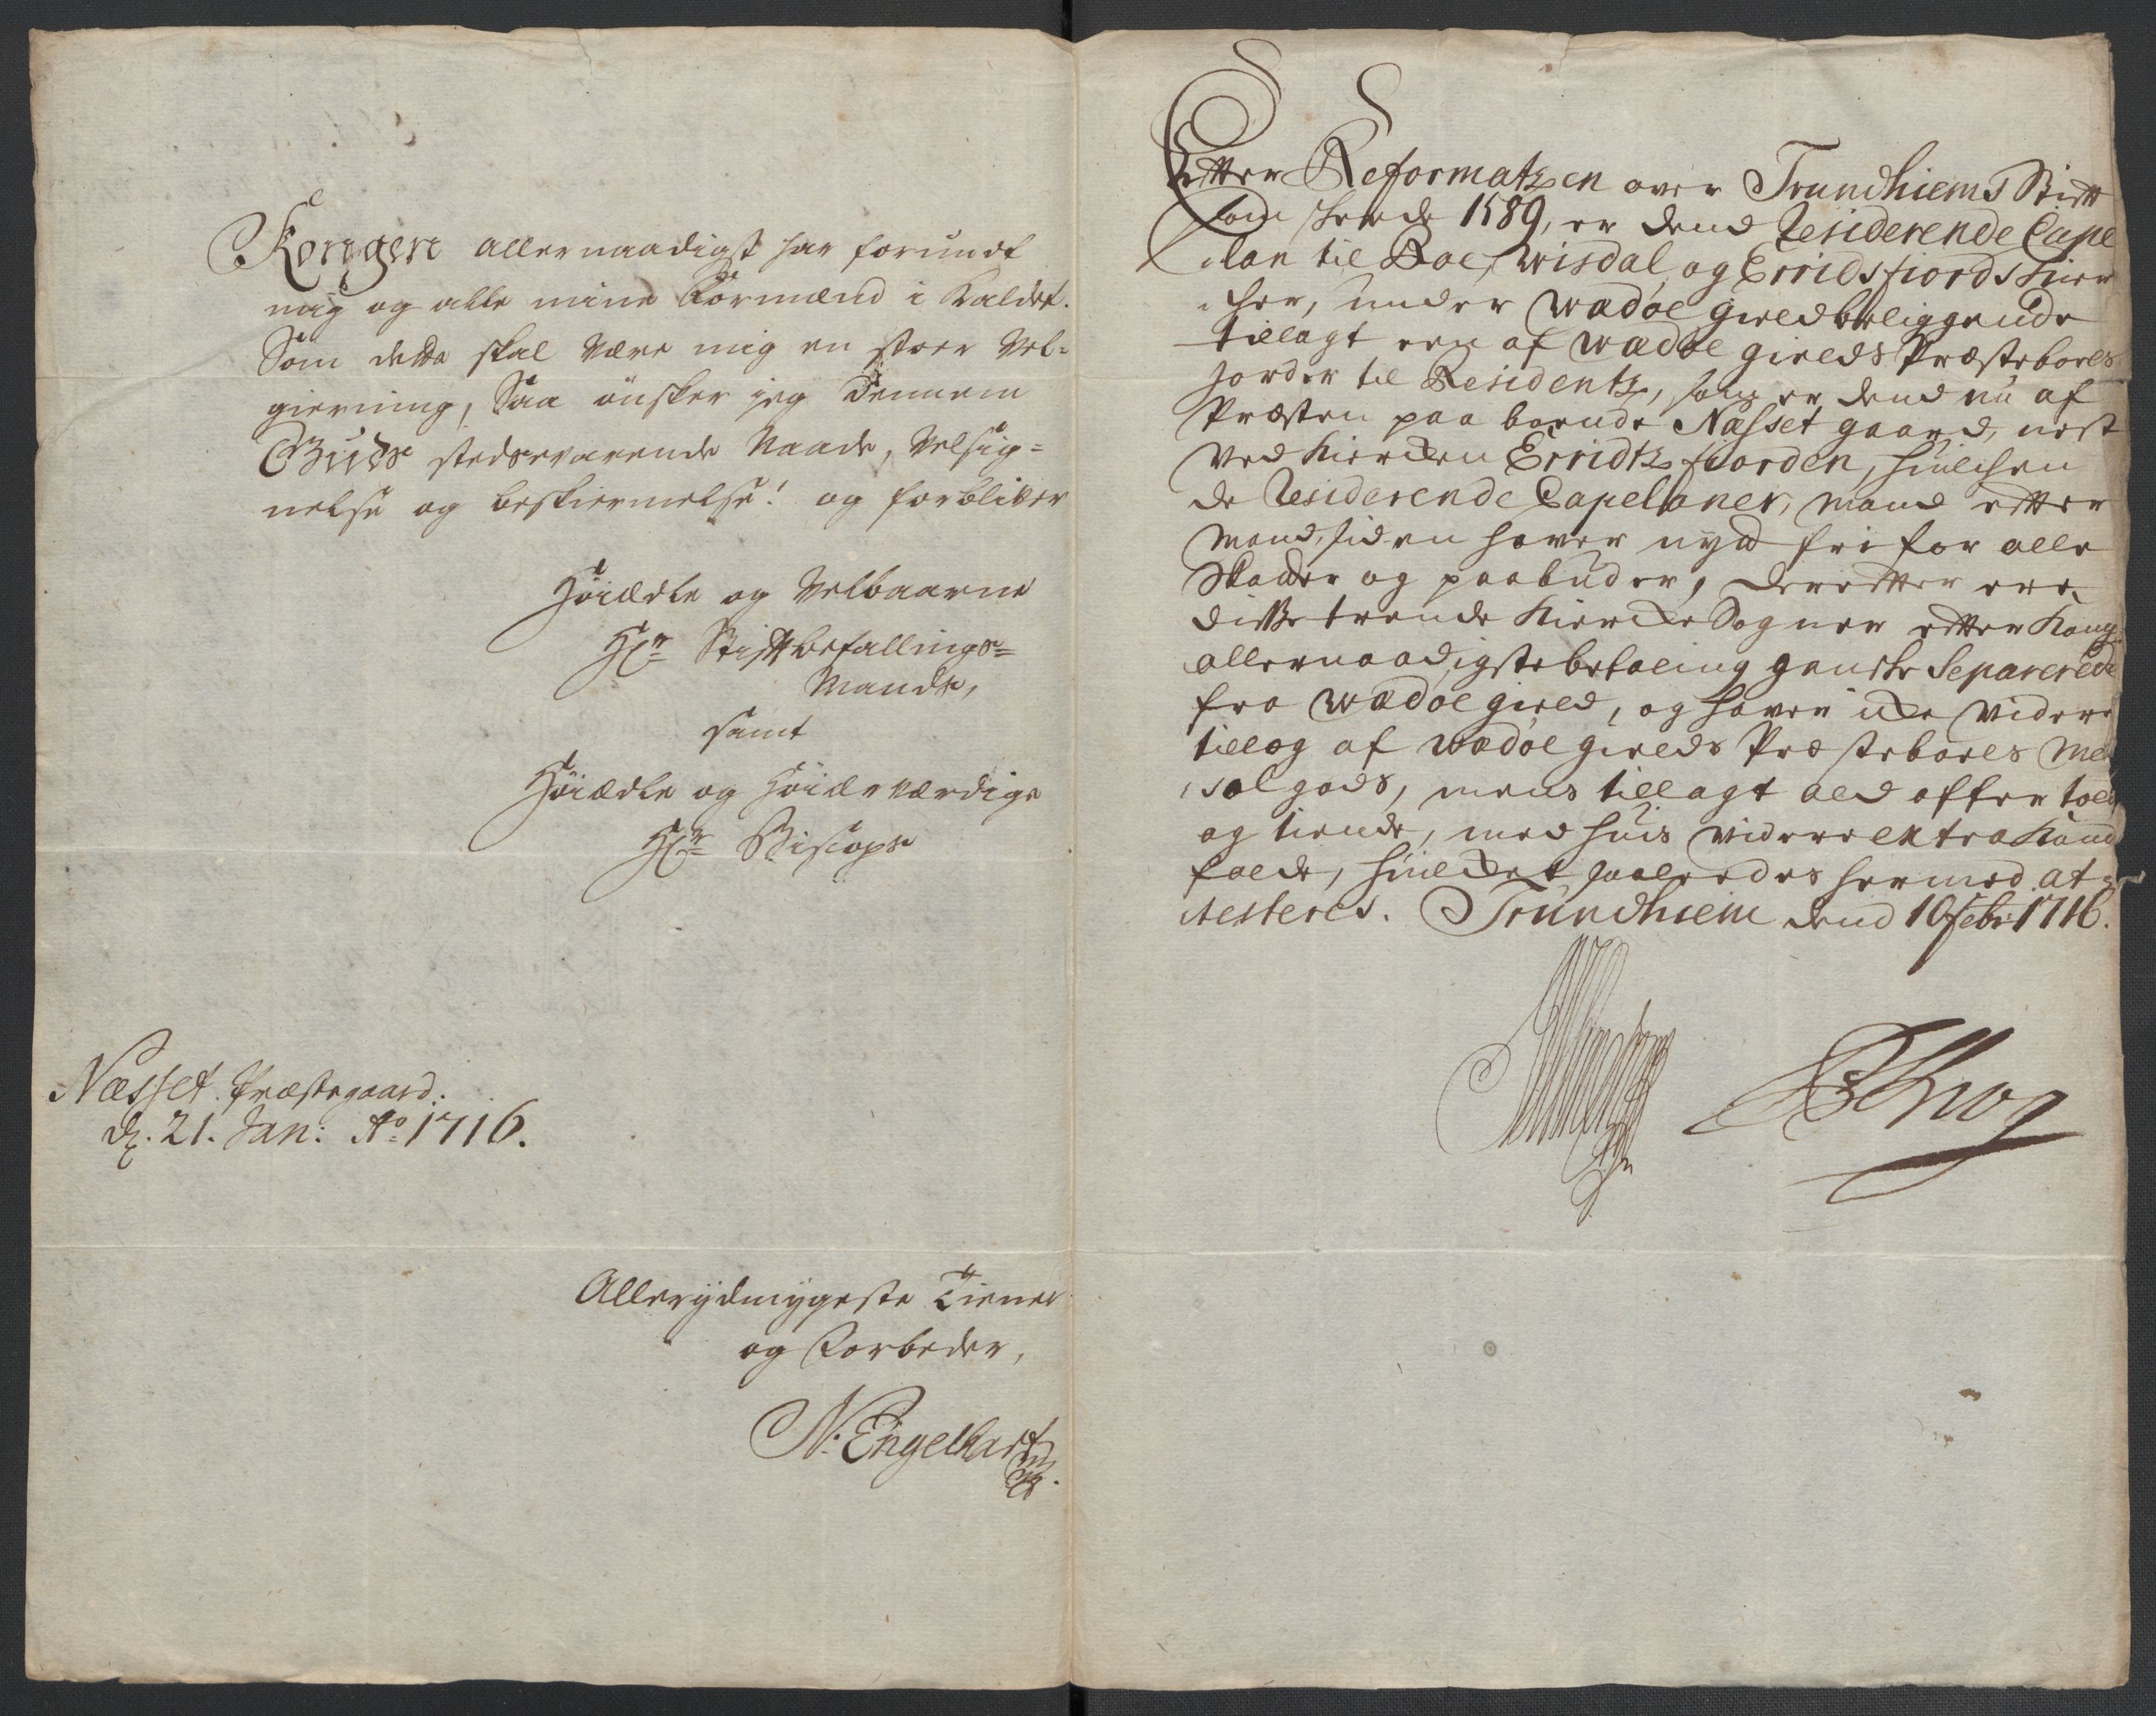 Kongen allernaadigst har forundt
mig og alle mine Formænd i Kaldet.
Som dette skal være mig en stoor Vel=
gierning, Saa ønsker jeg Dennem
Guds stedsevarende Naade, Velsig=
nelse og beskiermelse! og forbliver
Høiædle og Velbaarne
Hr Stiftbefallings=
Mands,
samt
Høiædle og Høiærværdige
Hr Biscops
Næsset Præstegaard.
d. 21. Jan: Ao 1716.
Allerydmygeste Tiener
og Forbeder,
N. Engelhart
Efter Reformatzen over Trundhiems Stift
som skeede 1589, er dend Residerende Cape
lan til Roe, Wisdal, og Erridsfiords Kier
cher, under Wædøe gield beliggende
tillagt een af Wædøe gields Præsteboels
Jorder til Residentz, som er dend nu af
Præsten paa boende Næsset gaard, nest
ved Kiercken Erridtzfiorden, huilchen
de Residerende Capellaner, Mand efter
Mand, siden haver nydt fri for alle
Skatter og paabuder, derefter ere
disse trende Kiercke Sogner efter Kong:
allernaadigste befaling gandske Separerede
fra Wædøe gield, og haver icke videre
tillæg af Wædøe gields Præsteboels Men
salgods, mens tillagt ald offer told
og tiende, med huis videre extra Kand
falde, huilcket saaledes hermed at=
testeres. Trundhiem dend 10 febr: 1716.
P Krog